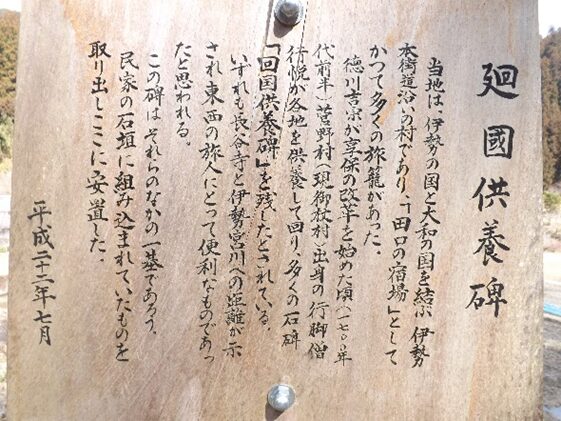 廻國供養碑
当地は、伊勢の国と大和の国を結ぶ伊勢
本街道沿いの村であり、「田口の宿場」として
かつて多くの旅籠があった。
徳川吉宗が享保の改革を始めた頃(一七〇〇年
代前半)菅野村(現御杖村)出身の行脚僧
待悦が各地を供養して回り、多くの石碑
「回国供養碑」を残したとされている。
いずれも長谷寺と伊勢宮川への距離が示
され東西の旅人にとって便利なものであっ
たと思われる。
この碑はそれらのなかの一基であろう。
民家の石垣に組み込まれていたものを
取り出しここに安置した。
平成二十二年七月